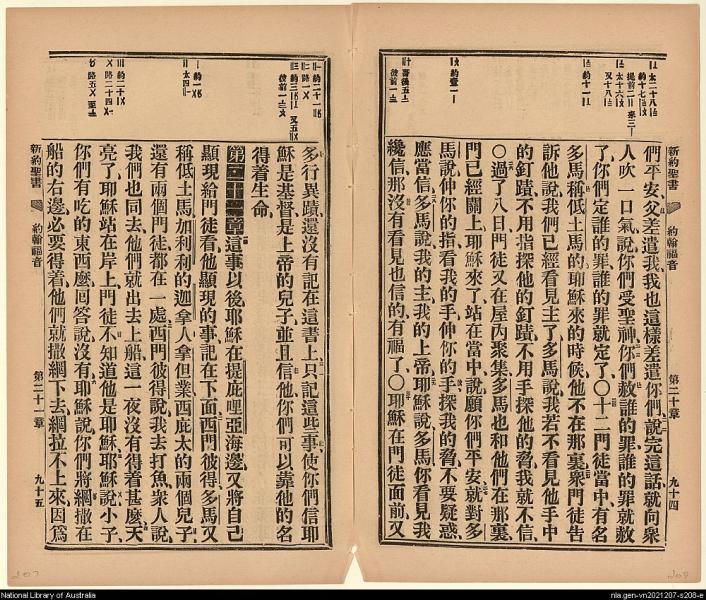 新約聖書
約翰福音
第二十章
九十四
們平安父差遣我我也這樣差遣你們說完這話就向衆
人吹一口氣說你們受聖神你們赦誰的罪誰的罪就赦
了你們定誰的罪誰的罪就定了〇十二門徒當中有名
多馬稱低土馬的耶穌來的時候他不在那裏衆門徒告
訴他說我們已經看見主了多馬說我若不看見他手中
的釘蹟不用指探他的釘蹟不用手探他的脅我就不信
〇過了八日門徒又在屋內聚集多馬也和他們在那裏
門已經關上耶穌來了站在當中說願你們平安就對多
馬說伸你的指看我的手伸你的手探我的脅不要疑惑
應當信多馬說我的主我的上帝耶穌說多馬你看見我
纔信那沒有看見也信的有福了〇耶穌在門徒面前又
多行異蹟還沒有記在這書上只記這些事使你們信耶
穌是基督是上帝的兒子並且信他你們可以靠他的名
得着生命
第二十一章這事以後耶穌在提庇哩亞海邊又將自己
顯現給門徒看他顯現的事記在下面西門彼得多馬又
稱低土馬加利利的迦拿人拿但業西庇太的兩個兒子
還有兩個門徒都在一處西門彼得說我去打魚衆人說
我們也同去他們就出去上船這一夜沒有得着甚麽天
亮了耶穌站在岸上門徒不知道他是耶穌耶穌說小子
你們有吃的東西麽回答說沒有耶穌說你們將網撒在
船的右邊必要得着他們就撒網下去網拉不上來因爲
新約聖書
約翰福音
第二十一章
九十五
National Library of Australia
nla.gen-vn2021207-s208-e